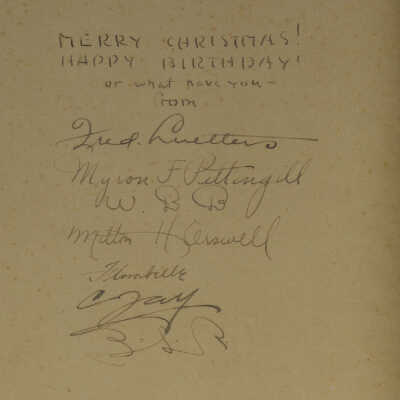 MERRY CHRISTMAS!
HAPPY BIRTHDAY!
or what have you—
from
Fred. Luetters
Myron F Pettingill
W. B B
Milton H Carswell
Florabelle
C Jay